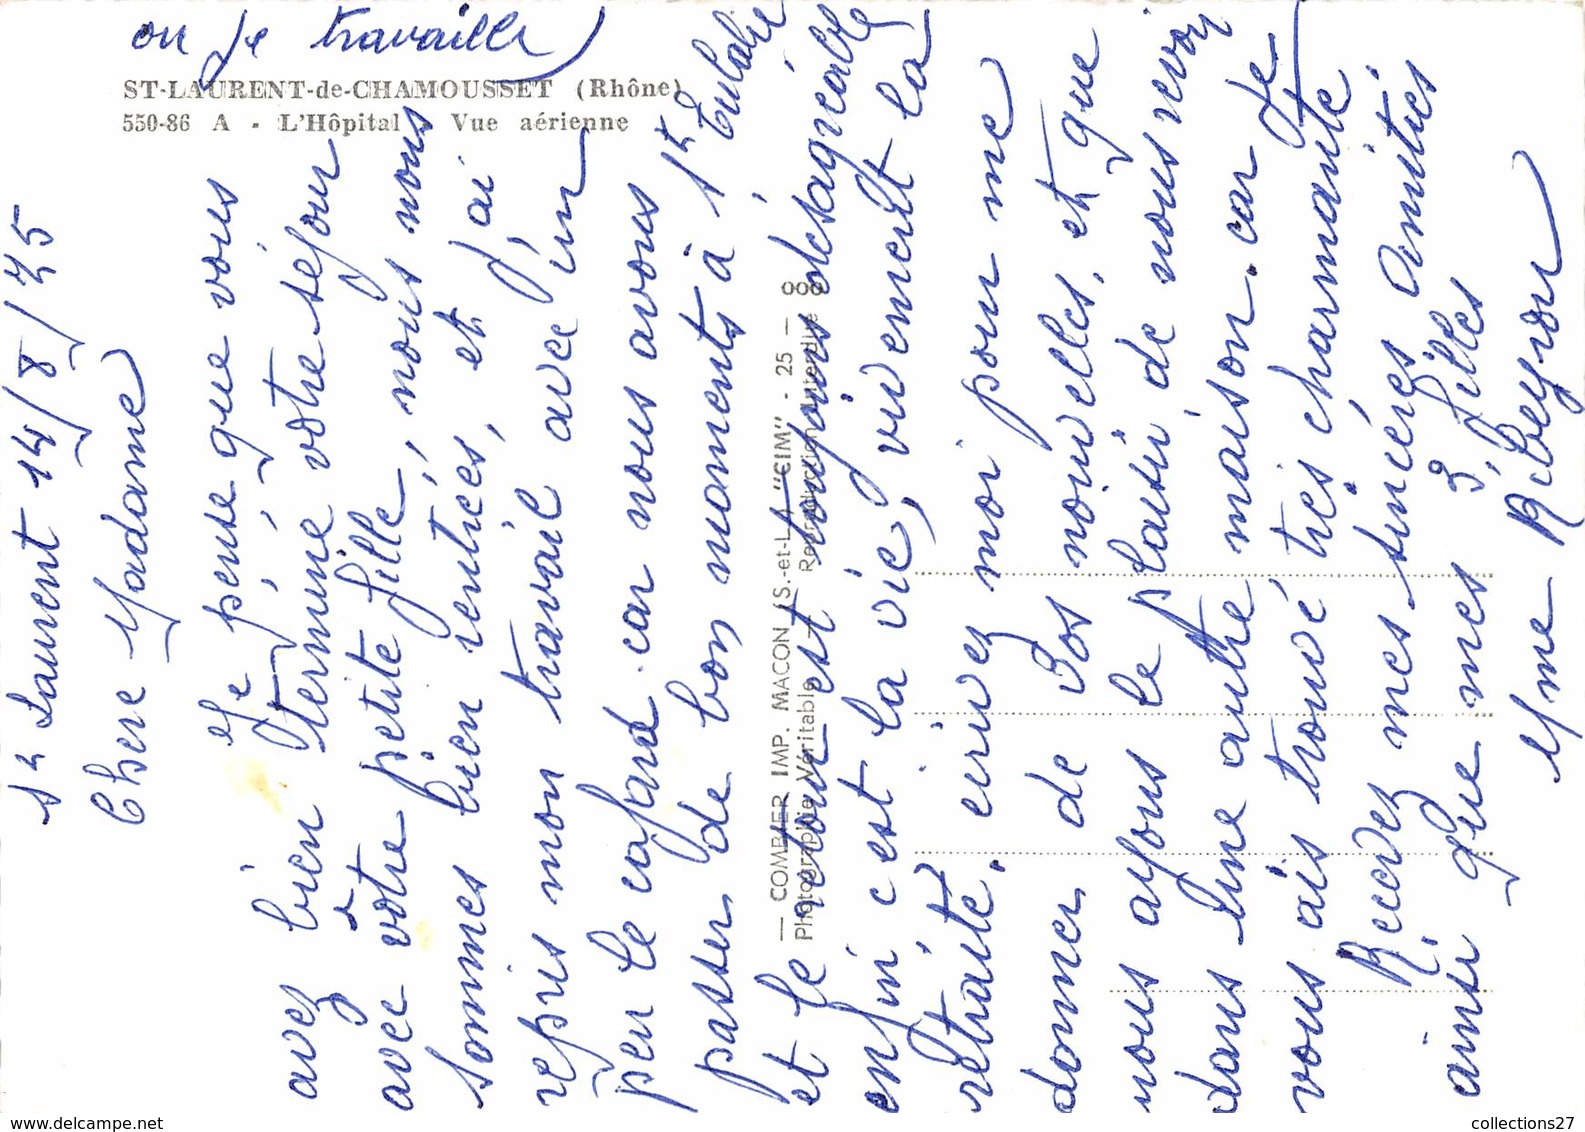 où je travaille)
ST-LAURENT-de-CHAMOUSSET (Rhône)
550-86 A - L'Hôpital - Vue aérienne
St Laurent 14/8/75
Chere Madame
Je pense que vous
avez bien terminé votre séjour
avec vôtre petite fille, nous nous
sommes bien rentrées, et j'ai
repris mon travail avec un
peu le cafard car nous avons
passer de bon moments à St Eulalie
et le retour est toujours desagreable
enfin c'est la vie, vivement la
retraite. ecrivez moi pour me
donner de vos nouvelles, et que
nous ayons le plaisir de nous revoir
dans une autre maison. car je
vous ais trouvé très charmante
Recevez mes sincères amitiés
ainsi que mes 3 filles
Mme Ribeyron
— COMBIER IMP. MACON (S.-et-L.) "CIM" - 25 —
Photographie Véritable — Reproduction Interdite
www.delcampe.net
collections27